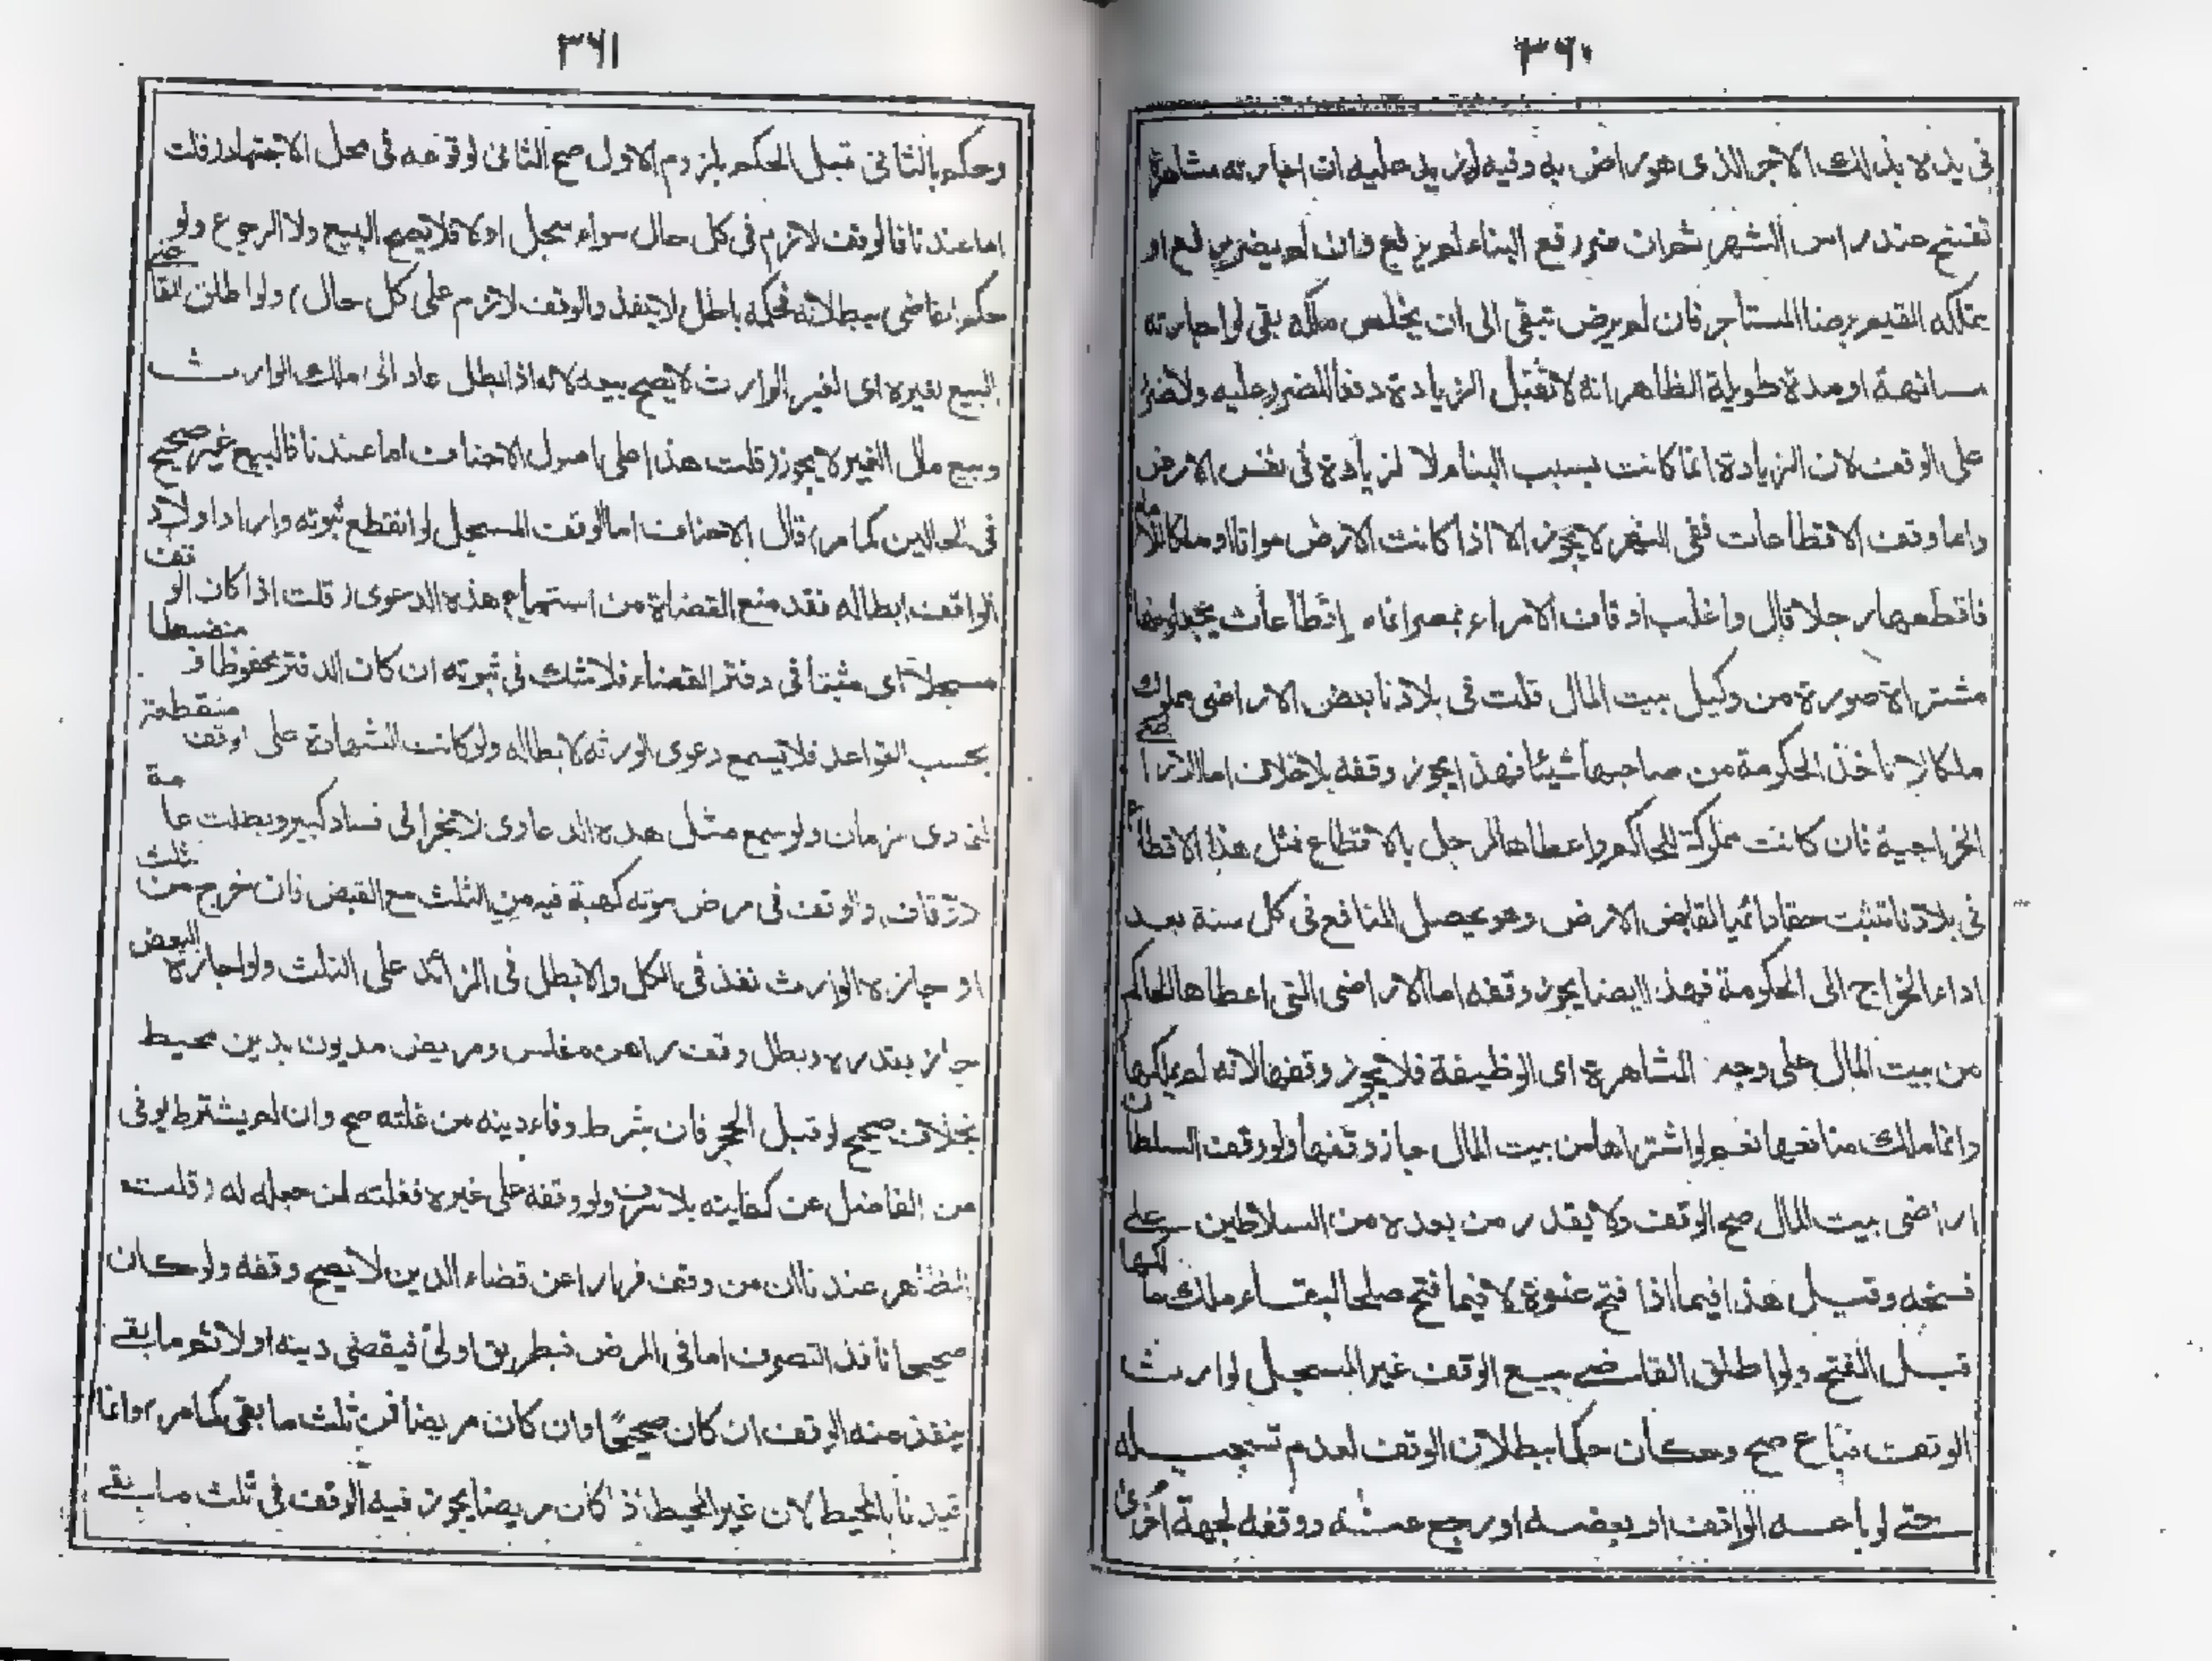 ٣٦٠
في يده لا بذلك الاجر الذى هو راض به وفيه لو زيد عليه ان اجارته مشاهرة
تفسخ عند راس الشهر ثم ان ضر رفع البناء لم يرفع وان لم يضر يرفع او
يتملكه القيم برضا المستأجر فان لم يرض تبقى الى ان يخلص ملكه بقى لو اجارته
مسانهة او مدة طويلة الظاهر انه لا تقبل الزيادة دفعا للضرر عليه ولا ضرر
على الوقف لان الزيادة انما كانت بسبب البناء لا لزيادة في نفس الارض
واما وقف الاقطاعات ففى النهر لا يجوز الا اذا كانت الارض مواتا او ملكا للامام
فاقطعها رجلا قال واغلب اوقاف الامراء بمصر انما هو اقطاعات يجعلونها
مشتراة صورة من وكيل بيت المال قلت في بلادنا بعض الاراضى مملوك
ملكا لا تاخذ الحكومة من صاحبها شيئا فهذا يجوز وقفه بلا خلاف اما الاراضي
الخراجية فان كانت مملوكة للحاكم واعطاها لرجل بالاقطاع فمثل هذا الاقطاع
في بلادنا تثبت حقا دائميا لقابض الارض وهو يحصل المنافع في كل سنة بعد
اداء الخراج الى الحكومة فهذا ايضا يجوز وقفه اما الاراضى التي اعطاها الحاكم
من بيت المال على وجه المشاهرة اى الوظيفة فلا يجوز وقفها لانه لم يملكها
وانما ملك منافعها نعم لو اشتراها من بيت المال جاز وقفها ولو وقف السلطان
اراضى بيت المال صح الوقف ولا يقدر من بعده من السلاطين على
فسخه وقيل هذا فيما اذا فتح عنوة لا فيما فتح صلحا لبقاء ملك مالكها
قبل الفتح ولو اطلق القاضے بيع الوقف غير المسجل لوارث
الوقف فباع صح وكان حكما ببطلان الوقف لعدم تسجيله
حتے لو باعه الواقف او بعضه او رجع عنه ووقفه لجهة اخرى
٣٦١
وحكم بالثانى قبل الحكم بلزوم الاول صح الثانى لوقوعه فى محل الاجتهاد (قلت
اما عندنا فالوقف لازم فى كل حال سواء سجل اولا فلا يصح البيع ولا الرجوع ولو
حكم القاضى ببطلانه فحكمه باطل لا ينفذ والوقف لازم على كل حال) ولو اطلق القاضى
البيع لغيره اى لغير الوارث لا يصح بيعه لانه اذا بطل عاد الى ملك الوارث
وبيع ملك الغير لا يجوز (قلت هذا على اصول الاحناف اما عندنا فالبيع غير صحيح
فى الحالين كما مر) قال الاحناف اما الوقف المسجل لو انقطع ثبوته واراد اولاد
الواقف ابطاله فقد منع القضاة من استماع هذه الدعوى (قلت اذا كان الوقف
مسجلا اى مثبتا فى دفتر القضاء فلا شك فى ثبوته ان كان الدفتر محفوظا منضبطا
بحسب القواعد فلا يسمع دعوى الورثة لابطاله ولو كانت الشهادة على الوقف منقطعة
لتمادى زمان ولو سمع مثل هذه الدعاوى لانجر الى فساد كبير وبطلت عامة
الاوقاف والوقف فى مرض موته كهبة فيه من الثلث مع القبض فان خرج من ثلث
او اجازه الوارث نفذ فى الكل والا بطل فى الزائد على الثلث ولو اجازه البعض
جاز بقدره وبطل وقف راهن مفلس ومريض مديون بدين محيط
بخلاف صحيح لو قبل الحجر فان شرط وفاء دينه من غلته صح وان لم يشترط يوفى
من الفاضل عن كفايته بلا سرف ولو وقفه على غيره فغلته لمن جعله له (قلت
الظاهر عندنا ان من وقف فرارا عن قضاء الدين لا يصح وقفه ولو كان
صحيحا نافذ التصرف اما فى المرض فبطريق اولى فيقضى دينه اولا ثم ما بقے
ينفذ منه الوقف ان كان صحيحا وان كان مريضا فمن ثلث ما بقى كما مر) وانما
قيدنا بالمحيط لان غير المحيط اذا كان مريضا يجوز فيه الوقف فى ثلث ما بقے